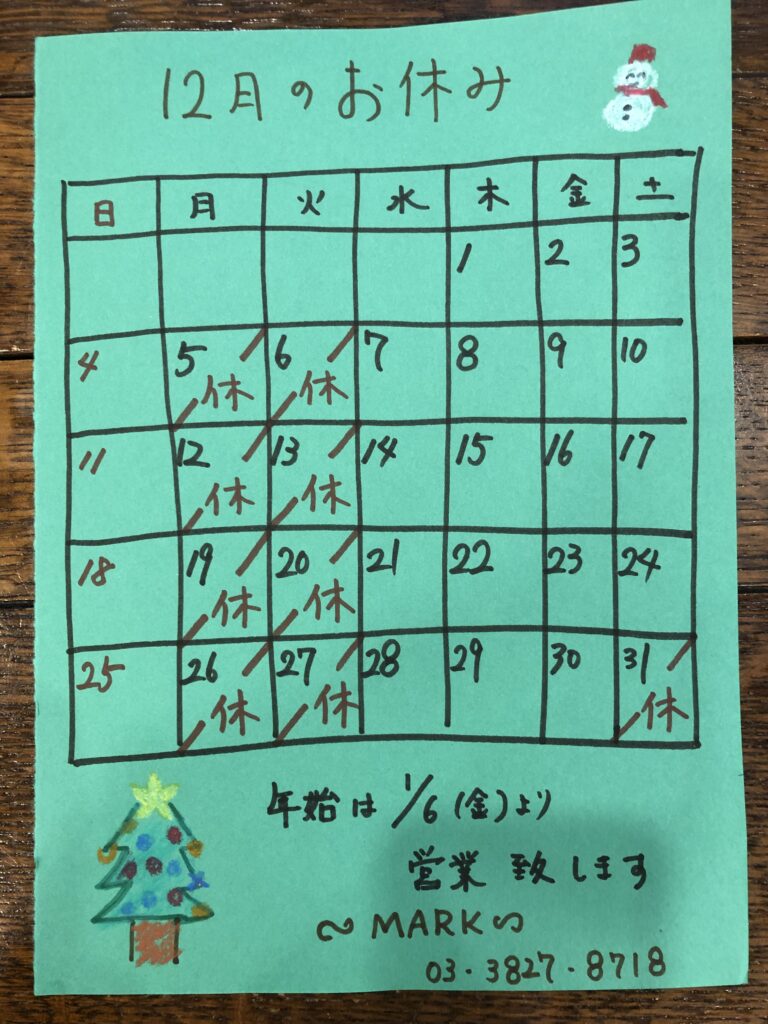 12月のお休み
日 月 火 水 木 金 土
1 2 3
4 5 休 6 休 7 8 9 10
11 12 休 13 休 14 15 16 17
18 19 休 20 休 21 22 23 24
25 26 休 27 休 28 29 30 31 休
年始は 1/6 (金)より
営業 致します
〜 MARK 〜
03・3827・8718